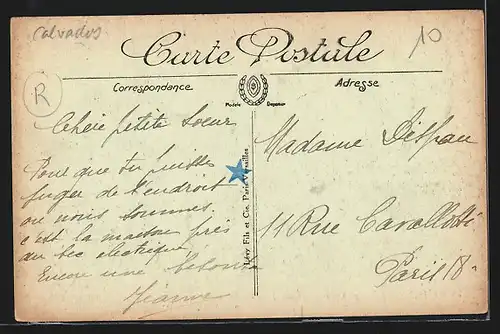 Calvados
10
R
Carte Postale
Correspondance
Adresse
Modèle Depose
Chère petite Soeur
Pour que tu puisses
juger de l'endroit
ou nous sommes.
c'est la maison près
du bec electrique
Encore une
Jeanne
Lévy Fils et Cie, Paris-Versailles
Madame
11 Rue Cavallotti
Paris 18e